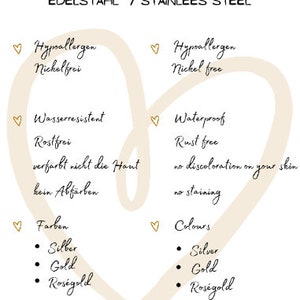 EDELSTAHL / STAINLEES STEEL
Hypoallergen
Nickelfrei
Hypoallergen
Nickel free
Wasserresistent
Rostfrei
verfärbt nicht die Haut
kein Abfärben
Waterproof
Rust free
no discoloration on your skin
no staining
Farben
• Silber
• Gold
• Roségold
Colours
• Silver
• Gold
• Roségold